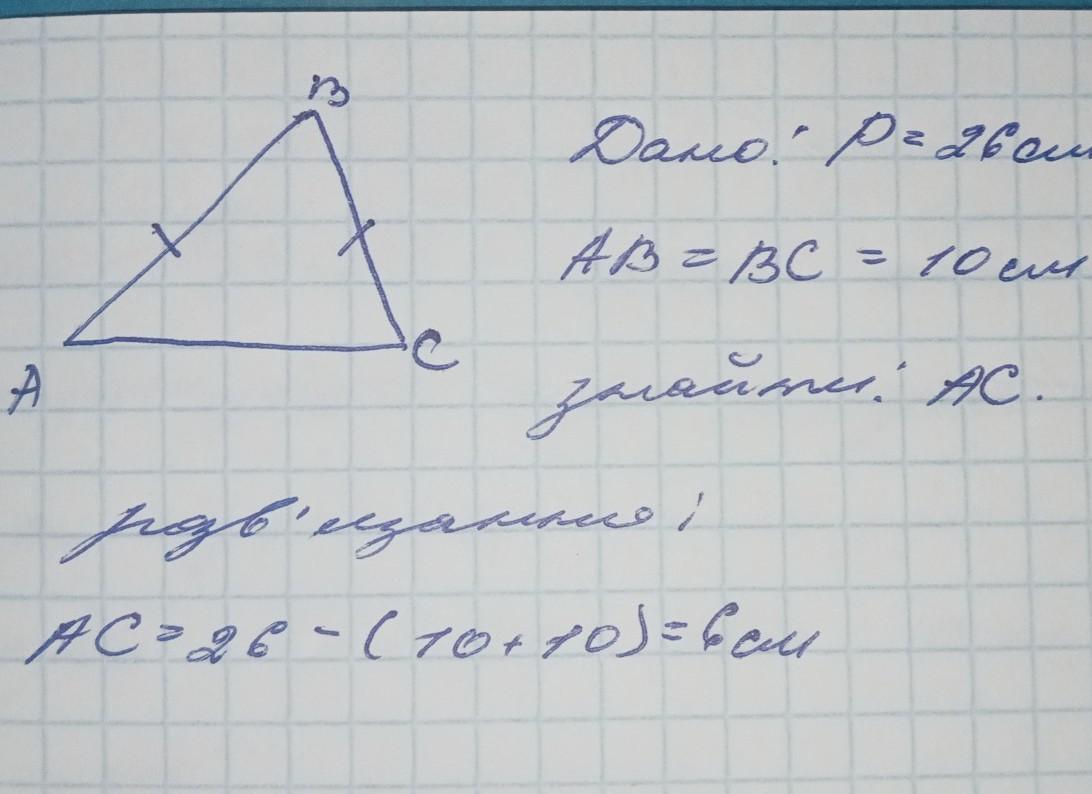 B
Дано: P = 26 см
AB = BC = 10 см
C
A
знайти: AC.
розв'язання:
AC = 26 - (10 + 10) = 6 см